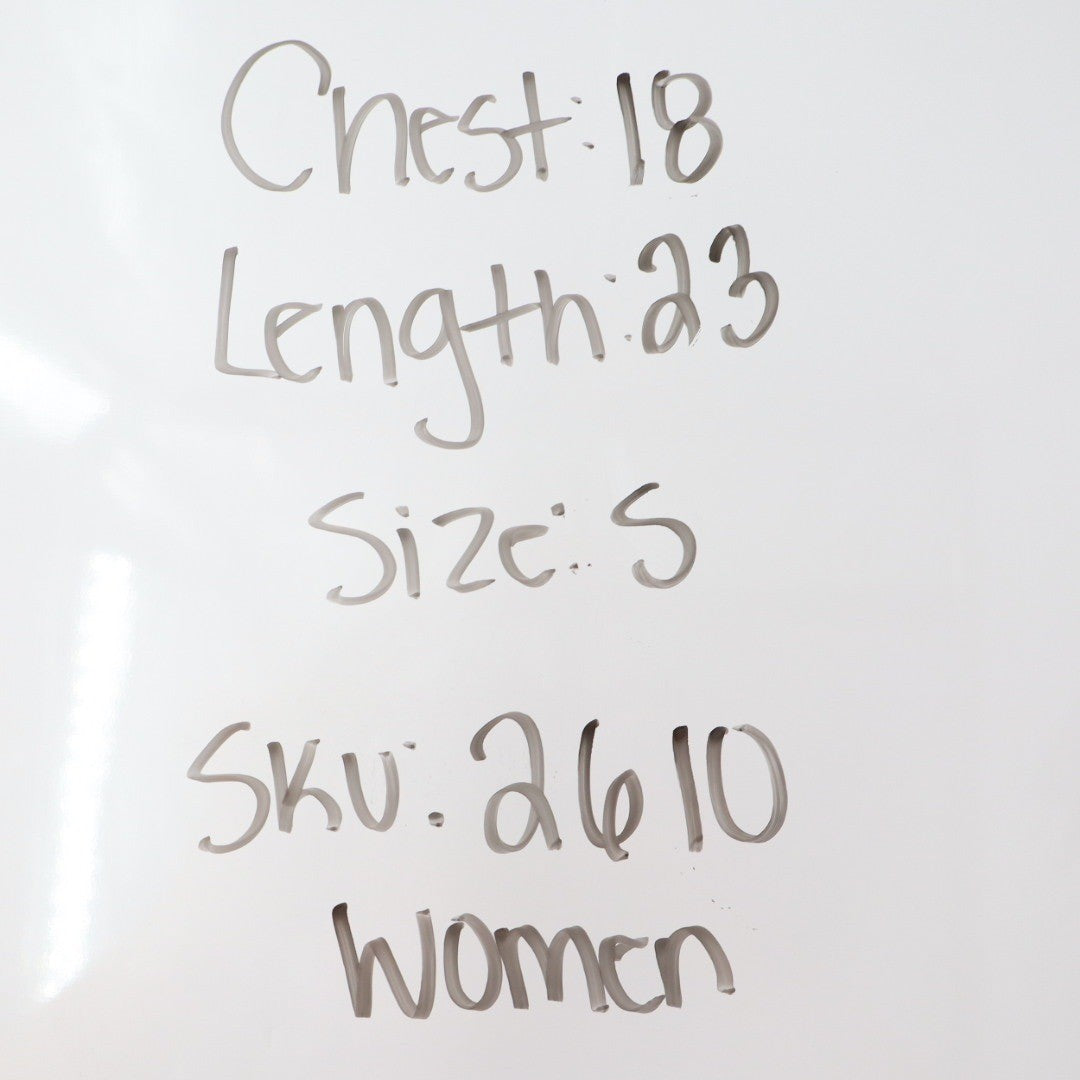 Chest: 18
Length: 23
Size: S
SKU: 2610
Women